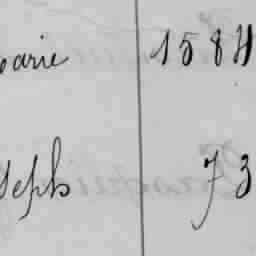 oarie 1584
seph 73